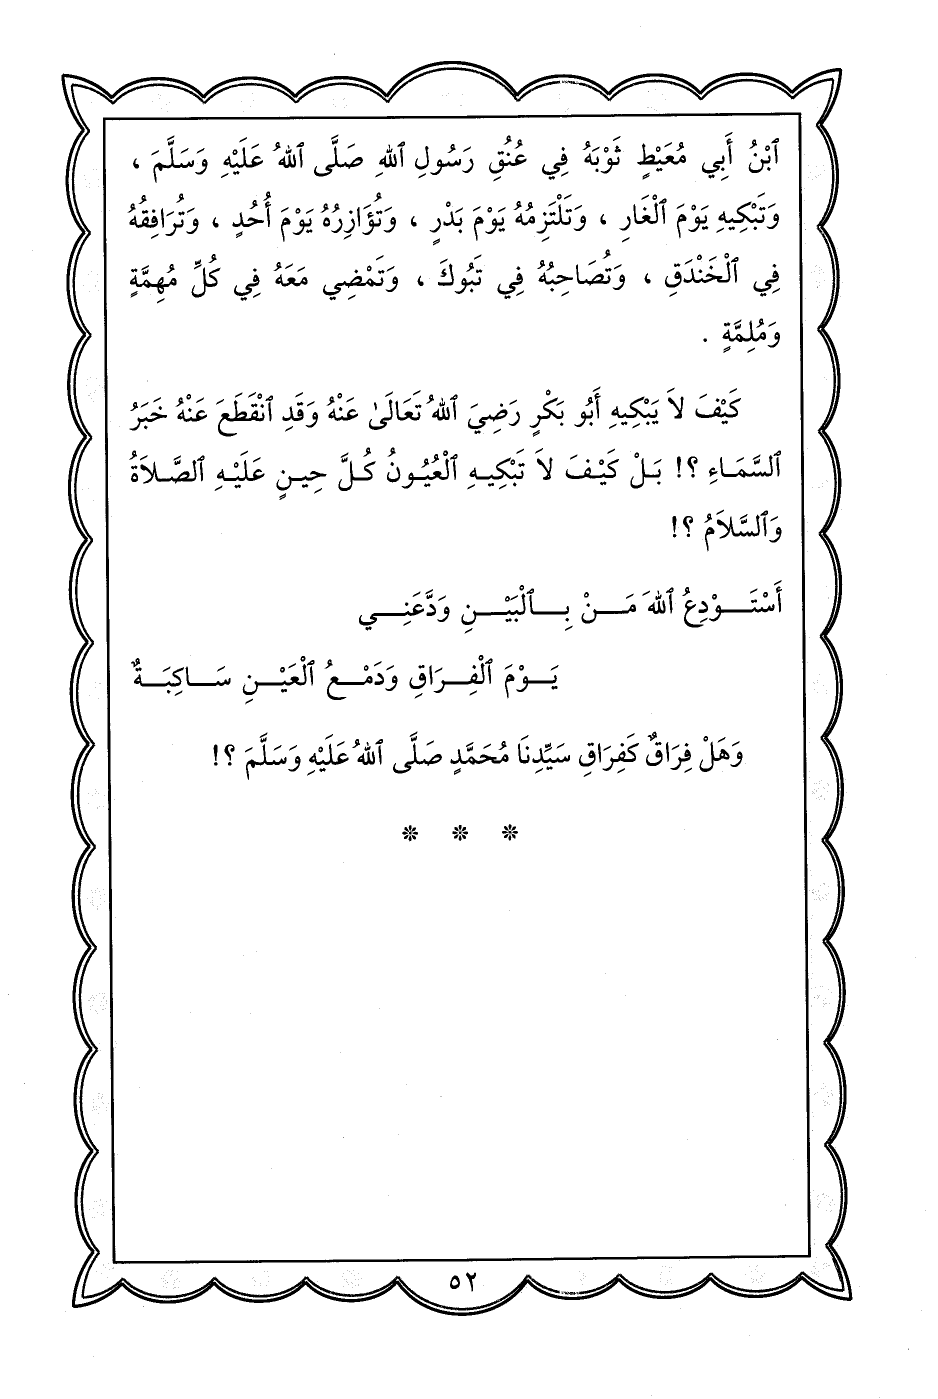 ٱبْنُ أَبِي مُعَيْطٍ ثَوْبَهُ فِي عُنُقِ رَسُولِ ٱللهِ صَلَّى ٱللهُ عَلَيْهِ وَسَلَّمَ ،
وَتَبْكِيهِ يَوْمَ ٱلْغَارِ ، وَتَلْتَزِمُهُ يَوْمَ بَدْرٍ ، وَتُؤَازِرُهُ يَوْمَ أُحُدٍ ، وَتُرَافِقُهُ
فِي ٱلْخَنْدَقِ ، وَتُصَاحِبُهُ فِي تَبُوكَ ، وَتَمْضِي مَعَهُ فِي كُلِّ مُهِمَّةٍ
وَمُلِمَّةٍ .
كَيْفَ لاَ يَبْكِيهِ أَبُو بَكْرٍ رَضِيَ ٱللهُ تَعَالَىٰ عَنْهُ وَقَدِ ٱنْقَطَعَ عَنْهُ خَبَرُ
ٱلسَّمَاءِ ؟! بَلْ كَيْفَ لاَ تَبْكِيهِ ٱلْعُيُونُ كُلَّ حِينٍ عَلَيْهِ ٱلصَّلاَةُ
وَٱلسَّلاَمُ ؟!
أَسْتَـوْدِعُ ٱللهَ مَـنْ بِـٱلْبَيْـنِ وَدَّعَنِـي
يَـوْمَ ٱلْفِـرَاقِ وَدَمْـعُ ٱلْعَيْـنِ سَـاكِبَـةٌ
وَهَلْ فِرَاقٌ كَفِرَاقِ سَيِّدِنَا مُحَمَّدٍ صَلَّى ٱللهُ عَلَيْهِ وَسَلَّمَ ؟!
* * *
٥٢